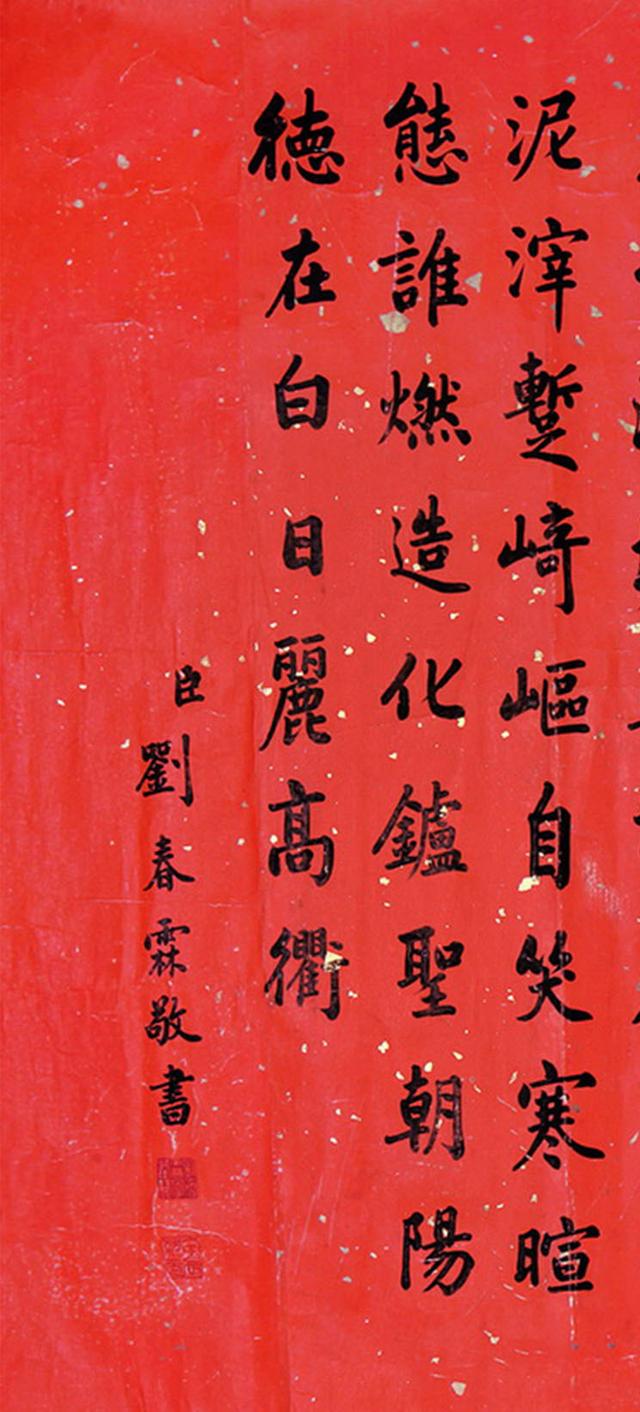 泥滓蹔崎嶇自笑寒暄
態誰燃造化鑪聖朝陽
徳在白日麗髙衢
臣劉春霖敬書